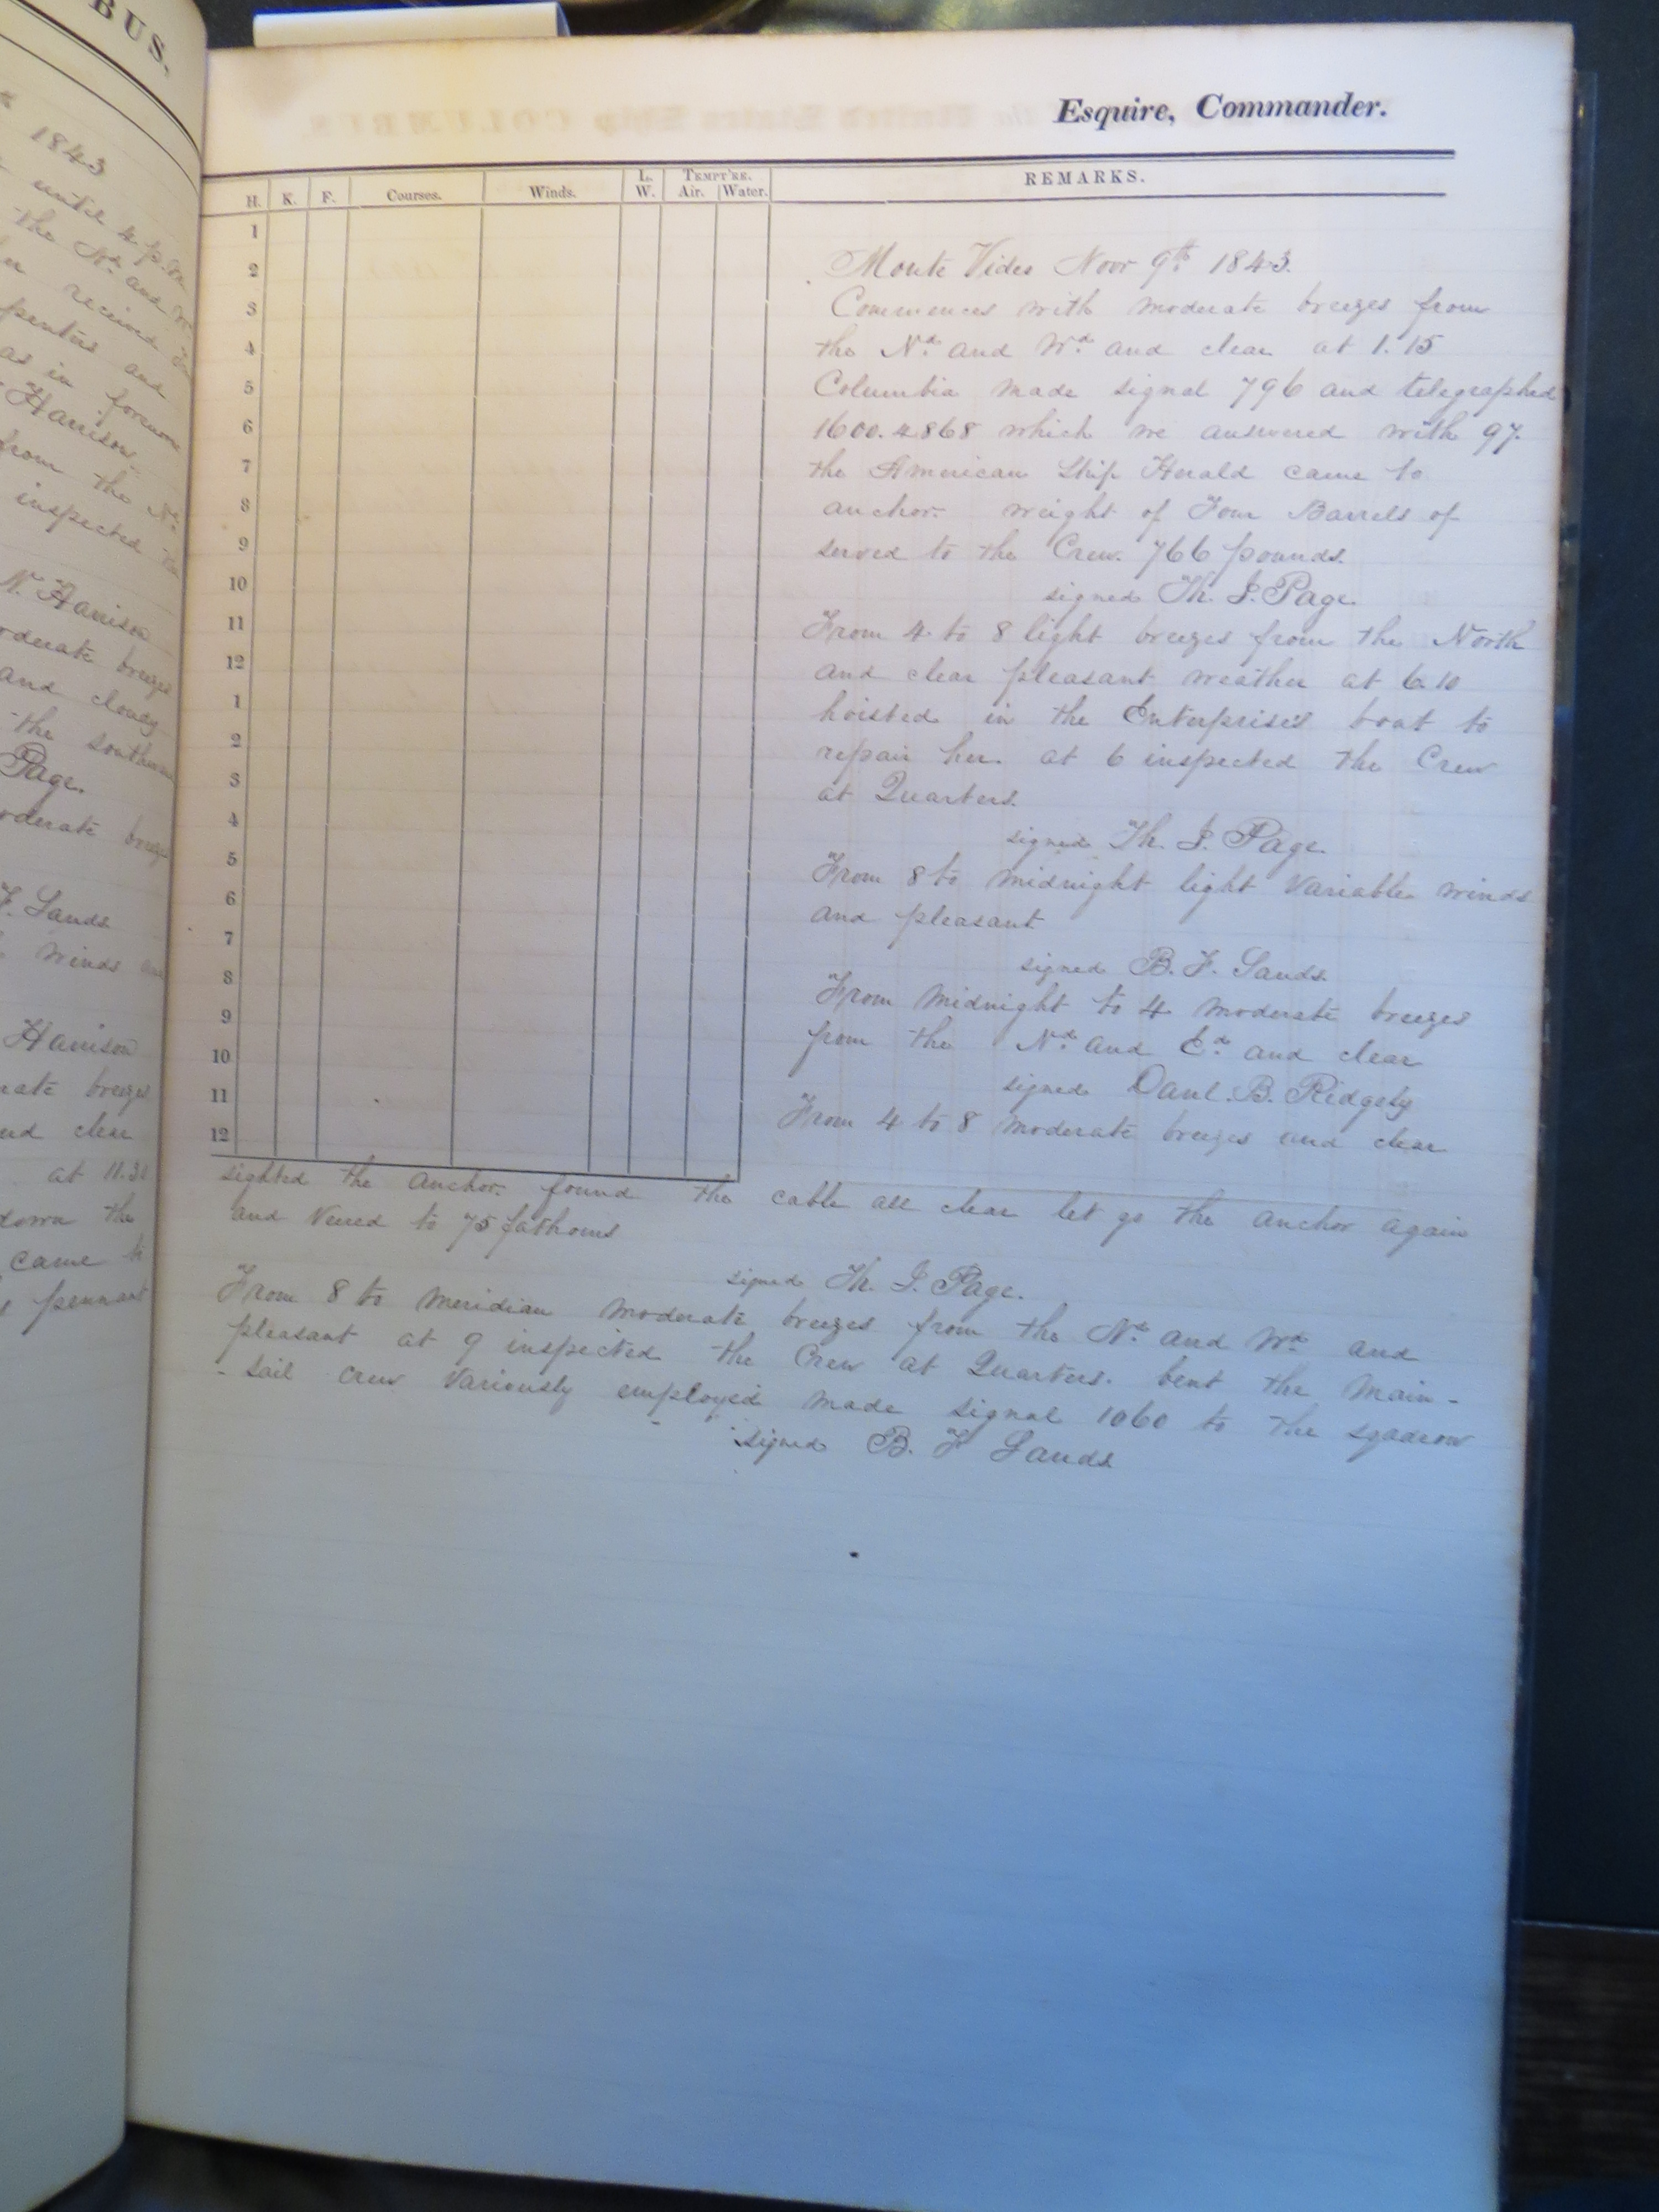 BUS.
1843
until 4 p.m.
the Nd. and W
received
penters and
as in forenoon
Harrison.
from the Nd.
inspected the
N. Harrison
oderate breezes
and cloudy
the southward
Page.
oderate breezes
F. Sands
winds and
Harrison
rate breezes
nd clear
at 11.30
down the
came to
pennant
Esquire, Commander.
H. K. F. Courses. Winds. L. W. TEMPT'RE. Air. Water. REMARKS.
1
2 Monte Video Novr 9th. 1843.
3 Commences with moderate breezes from
4 the Nd. and Wd. and clear at 1.15
5 Columbia made signal 796 and telegraphed
6 1600.4868 which we answered with 97.
7 the American Ship Herald came to
8 anchor. weight of Four Barrels of
9 served to the Crew. 766 pounds.
10 signed Th. J. Page.
11 From 4 to 8 light breezes from the North
12 and clear pleasant weather at 6.10
1 hoisted in the Enterprise's boat to
2 repair her. at 6 inspected the Crew
3 at Quarters.
4 signed Th. J. Page.
5 From 8 to midnight light variable winds
6 and pleasant
7 signed B. F. Sands.
8 From midnight to 4 moderate breezes
9 from the Nd. and Ed. and clear
10 signed Danl. B. Ridgely
11 From 4 to 8 moderate breezes and clear
12
sighted the anchor. found the cable all clear let go the anchor again
and Veered to 75 fathoms
signed Th. J. Page.
From 8 to meridian moderate breezes from the Nd. and Wd. and
pleasant at 9 inspected the Crew at Quarters. bent the main-
-sail crew variously employed made signal 1060 to the sqadron
signed B. F Sands